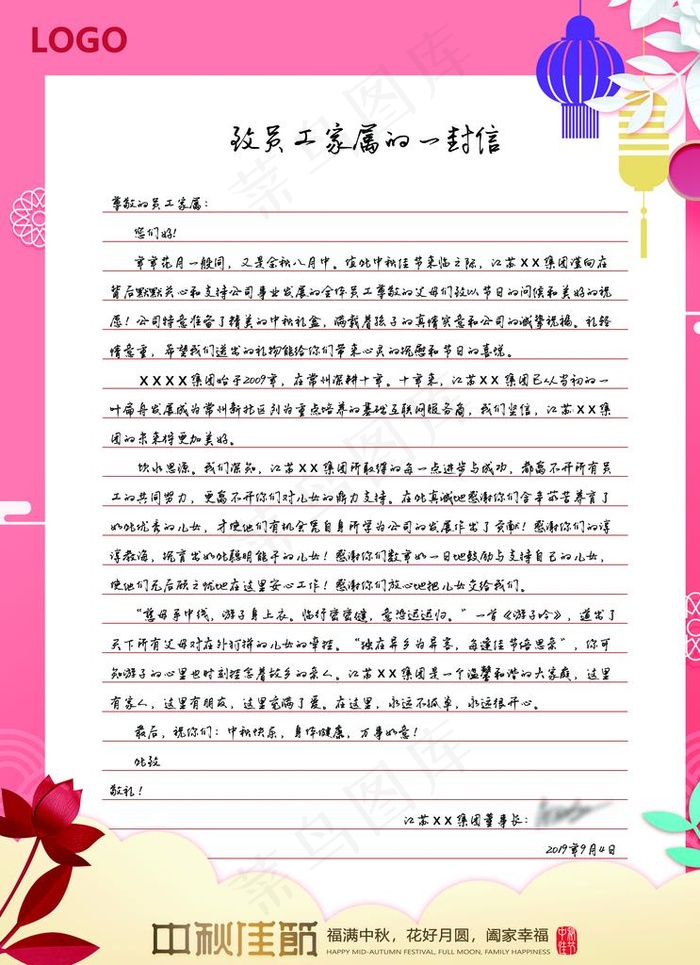 LOGO
致员工家属的一封信
尊敬的员工家属：
您们好！
年年花月一般同，又是金秋八月中。值此中秋佳节来临之际，江苏XX集团谨向在
背后默默关心和支持公司事业发展的全体员工尊敬的父母们致以节日的问候和美好的祝
愿！公司特意准备了精美的中秋礼盒，满载着孩子的真情实意和公司的诚挚祝福。礼轻
情意重，希望我们送出的礼物能给你们带来心灵的抚慰和节日的喜悦。
XXXX集团始于2009年，在常州深耕十年。十年来，江苏XX集团已从当初的一
叶扁舟发展成为常州新北区列为重点培养的基础互联网服务商，我们坚信，江苏XX集
团的未来将更加美好。
饮水思源。我们深知，江苏XX集团所取得的每一点进步与成功，都离不开所有员
工的共同努力，更离不开你们对儿女的鼎力支持。在此真诚地感谢你们含辛茹苦养育了
如此优秀的儿女，才使他们有机会凭自身所学为公司的发展作出了贡献！感谢你们的谆
谆教诲，抚育出如此聪明能干的儿女！感谢你们数年如一日地鼓励与支持自己的儿女，
使他们无后顾之忧地在这里安心工作！感谢你们放心地把儿女交给我们。
“慈母手中线，游子身上衣。临行密密缝，意恐迟迟归。”一首《游子吟》，道出了
天下所有父母对在外打拼的儿女的牵挂。“独在异乡为异客，每逢佳节倍思亲”，你可
知游子的心里也时刻挂念着故乡的亲人。江苏XX集团是一个温馨和谐的大家庭，这里
有家人，这里有朋友，这里充满了爱。在这里，永远不孤单，永远很开心。
最后，祝你们：中秋快乐，身体健康，万事如意！
此致
敬礼！
江苏XX集团董事长：
2019年9月4日
中秋佳節
福满中秋，花好月圆，阖家幸福
HAPPY MID-AUTUMN FESTIVAL, FULL MOON, FAMILY HAPPINESS
中秋佳节
菜鸟图库